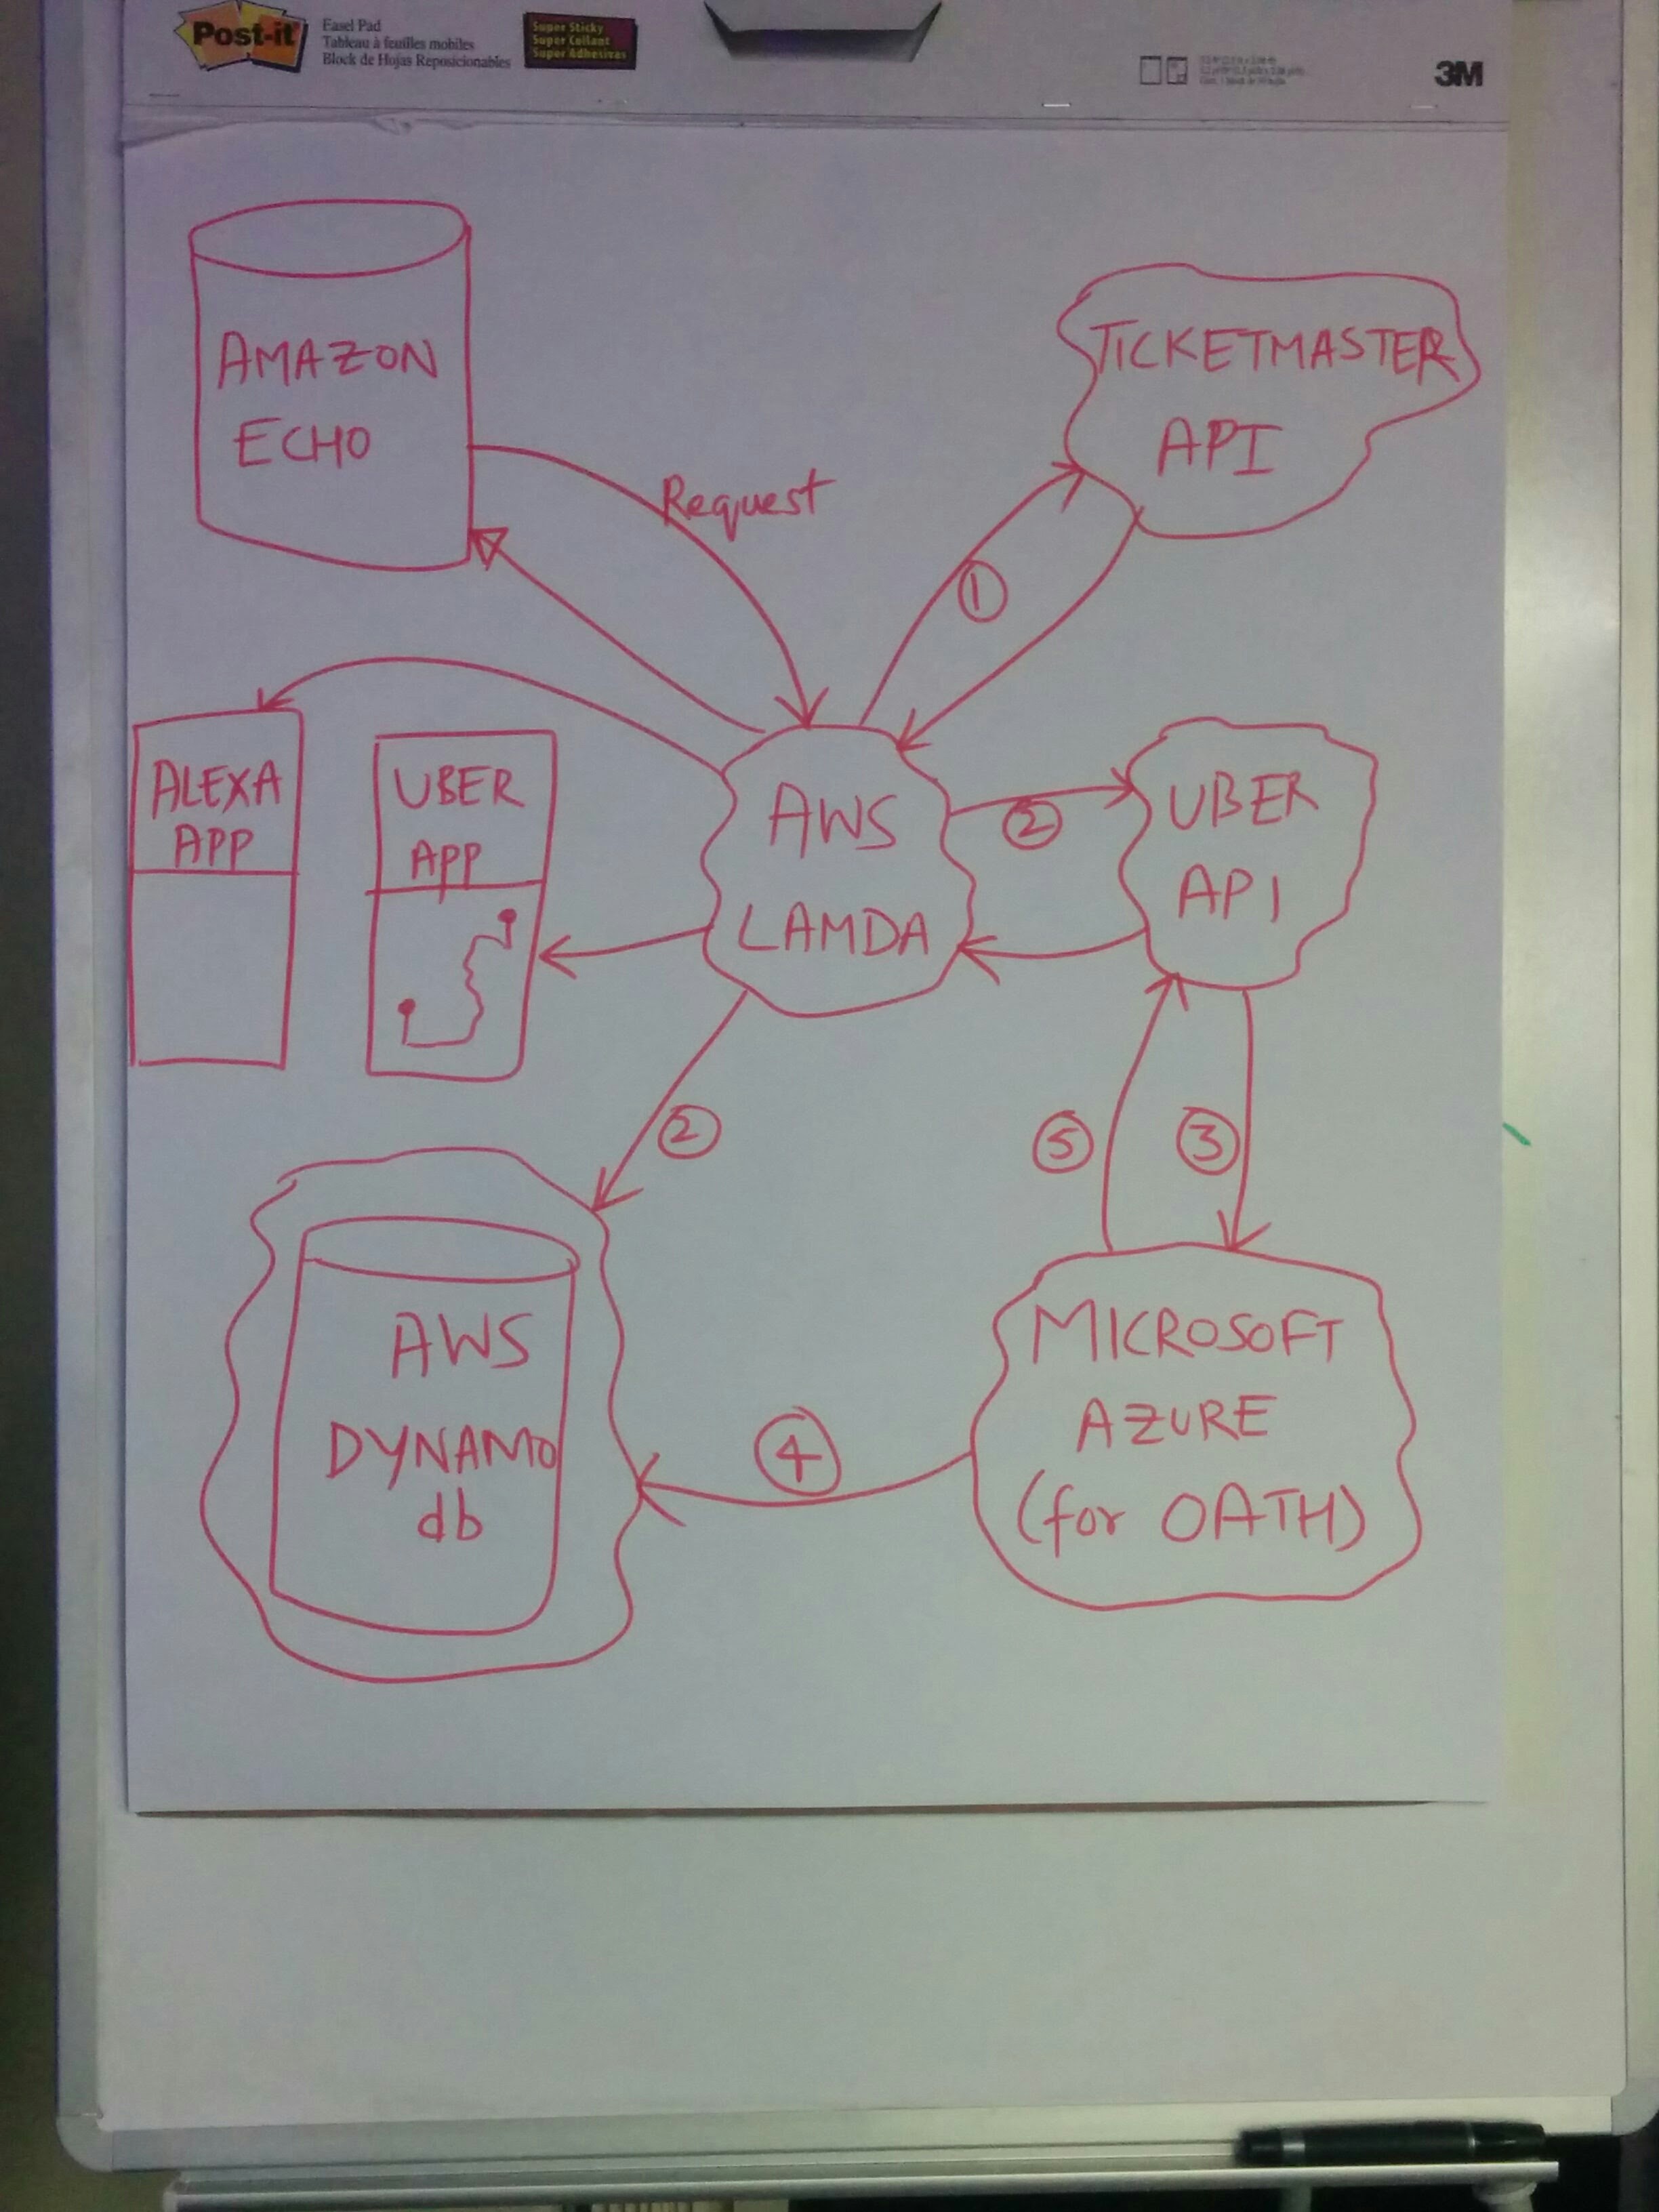 Post-it
Easel Pad
Tableau à feuilles mobiles
Block de Hojas Reposicionables
Super Sticky
Super Collant
Super Adhesivas
3M
AMAZON
ECHO
TICKETMASTER
API
Request
1
ALEXA
APP
UBER
APP
AWS
LAMDA
2
UBER
API
2
5
3
AWS
DYNAMO
db
4
MICROSOFT
AZURE
(for OATH)